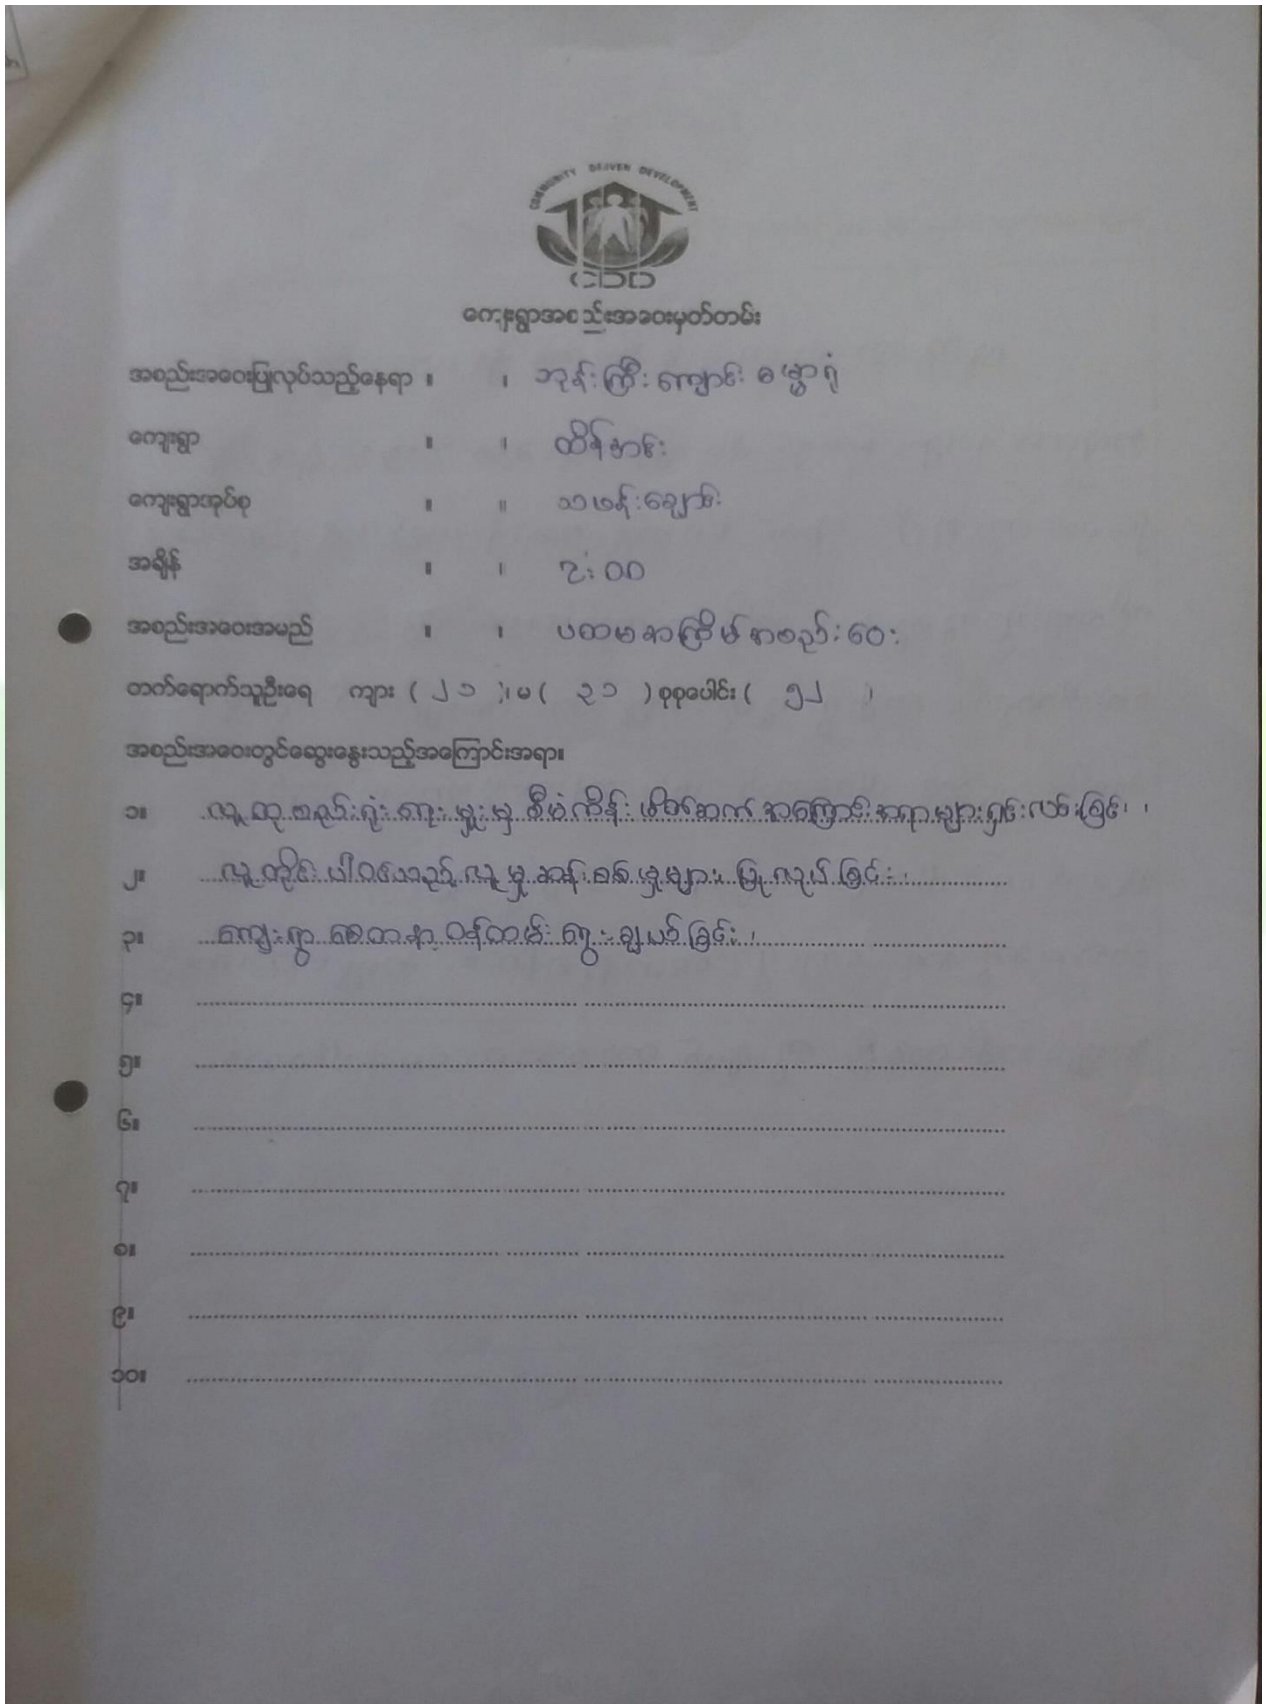 COMMUNITY DRIVEN DEVELOPMENT
CDD
ကျေးရွာအစည်းအဝေးမှတ်တမ်း
အစည်းအဝေးပြုလုပ်သည့်နေရာ ။ ၊ ဘုန်းကြီးကျောင်း ဓမ္မာရုံ
ကျေးရွာ ။ ၊ ထိန်အင်း
ကျေးရွာအုပ်စု ။ ။ သဖန်းချောင်း
အချိန် ။ ၊ ၃း၀၀
အစည်းအဝေးအမည် ။ ၊ ပထမအကြိမ်အစည်းဝေး
တက်ရောက်သူဦးရေ ကျား ( ၂၁ )၊ မ ( ၃၁ ) စုစုပေါင်း ( ၅၂ ၊
အစည်းအဝေးတွင်ဆွေးနွေးသည့်အကြောင်းအရာ။
၁။ လူထုစည်းရုံးရေးမှူးမှ စီမံကိန်းမိတ်ဆက် အကြောင်းအရာများရှင်းလင်းခြင်း၊
၂။ လူတိုင်းပါဝင်သည့်လူမှုဆန်းစစ်မှုများ ပြုလုပ်ခြင်း၊
၃။ ကျေးရွာစေတနာ့ဝန်ထမ်း ရွေးချယ်ခြင်း၊
၄။
၅။
၆။
၇။
၈။
၉။
၁၀။